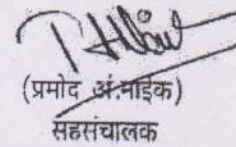 (प्रमोद अं.नाईक)
सहसंचालक